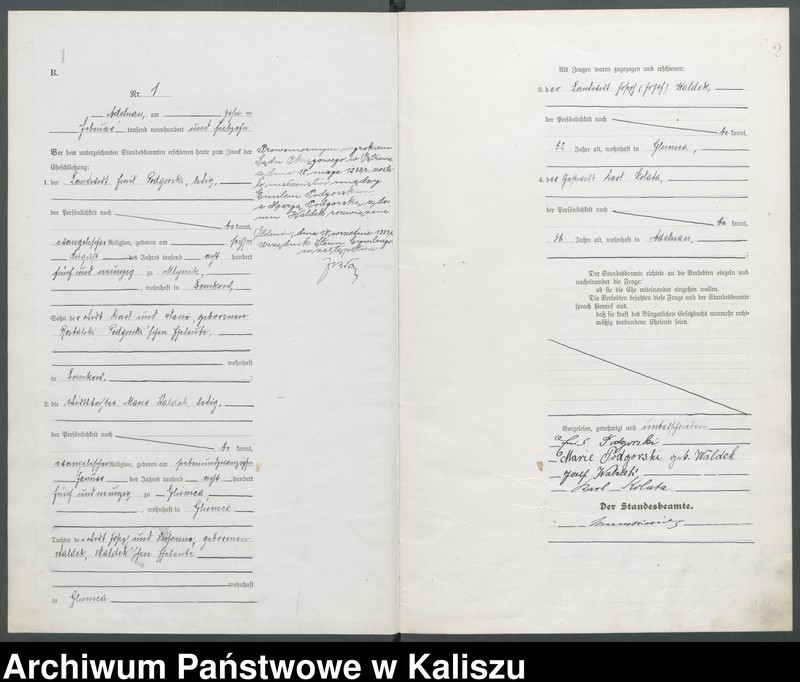 1
B.
Nr. 1
Adelnau, am zehn ten
Februar tausend neunhundert und siebzehn
Vor dem unterzeichneten Standesbeamten erschienen heute zum Zweck der
Eheschließung:
1. der Landwirt Emil Podgorski, ledig,
der Persönlichkeit nach
be kannt,
evangelischer Religion, geboren am
August des Jahres tausend acht hundert
fünf und neunzig zu Mlynik,
, wohnhaft in
Sohn des Wirt Karl und Marie, geborenen
Podgorski'schen Eheleute.
wohnhaft
in
2. die Wirtstochter Marie Waldek, ledig,
der Persönlichkeit nach
be kannt,
evangelischer Religion, geboren am siebenundzwanzigsten
Januar des Jahres tausend acht hundert
fünf und neunzig zu Glisnica
, wohnhaft in Glisnica
Tochter des Wirt Josef und Susanna, geborenen
Waldek, Waldek'schen Eheleute
wohnhaft
in Glisnica
Prawomocnym wyrokiem
Sądu Okręgowego w Ostrowie
z dnia 18 maja
małżeństwo między
Emilem Podgorskim
a Marją Podgorską z do-
mu Waldek rozwiązane.
dnia 18 września
Urzędnik Stanu Cywilnego
w zastępstwie
2
Als Zeugen waren zugezogen und erschienen:
3. der Landwirt Josef (Jozef) Waldek,
der Persönlichkeit nach
be kannt,
52 Jahre alt, wohnhaft in Glisnica,
4. der Gastwirt Karl Kolata,
der Persönlichkeit nach
be kannt,
36 Jahre alt, wohnhaft in Adelnau,
Der Standesbeamte richtete an die Verlobten einzeln und
nacheinander die Frage:
ob sie die Ehe miteinander eingehen wollen.
Die Verlobten bejahten diese Frage und der Standesbeamte
sprach hierauf aus,
daß sie kraft des Bürgerlichen Gesetzbuchs nunmehr recht-
mäßig verbundene Eheleute seien.
Vorgelesen, genehmigt und unterschrieben
Emil Podgorski
Marie Podgorski geb. Waldek
Jozef Waldek
Karl Kolata
Der Standesbeamte.
Archiwum Państwowe w Kaliszu